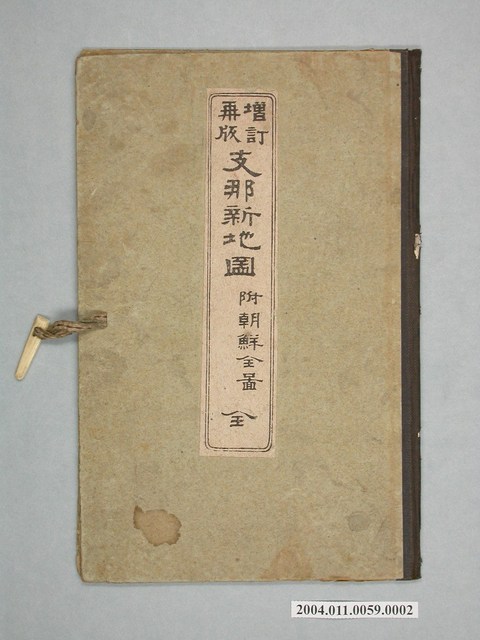 増訂
再版
支那新地圖
附朝鮮全啚
全
2004.011.0059.0002